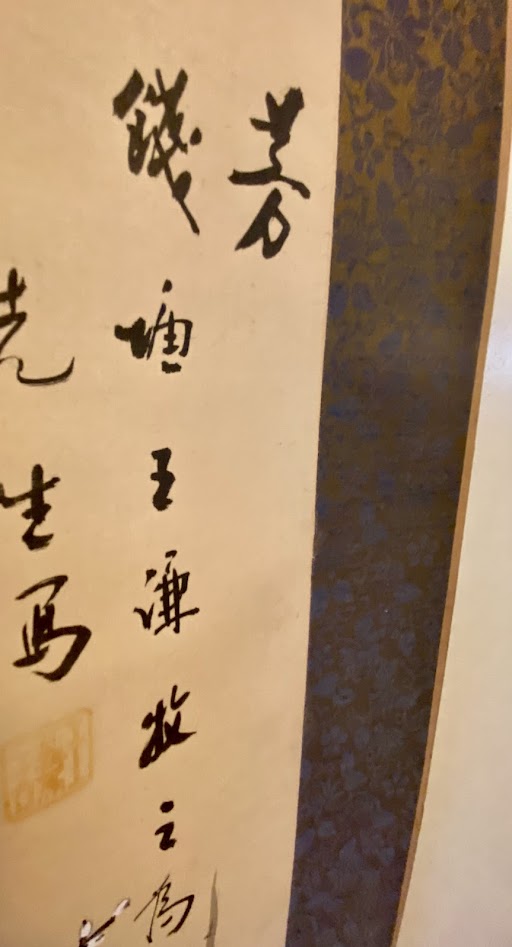 芳
錢塘王謙牧之爲
先生寫